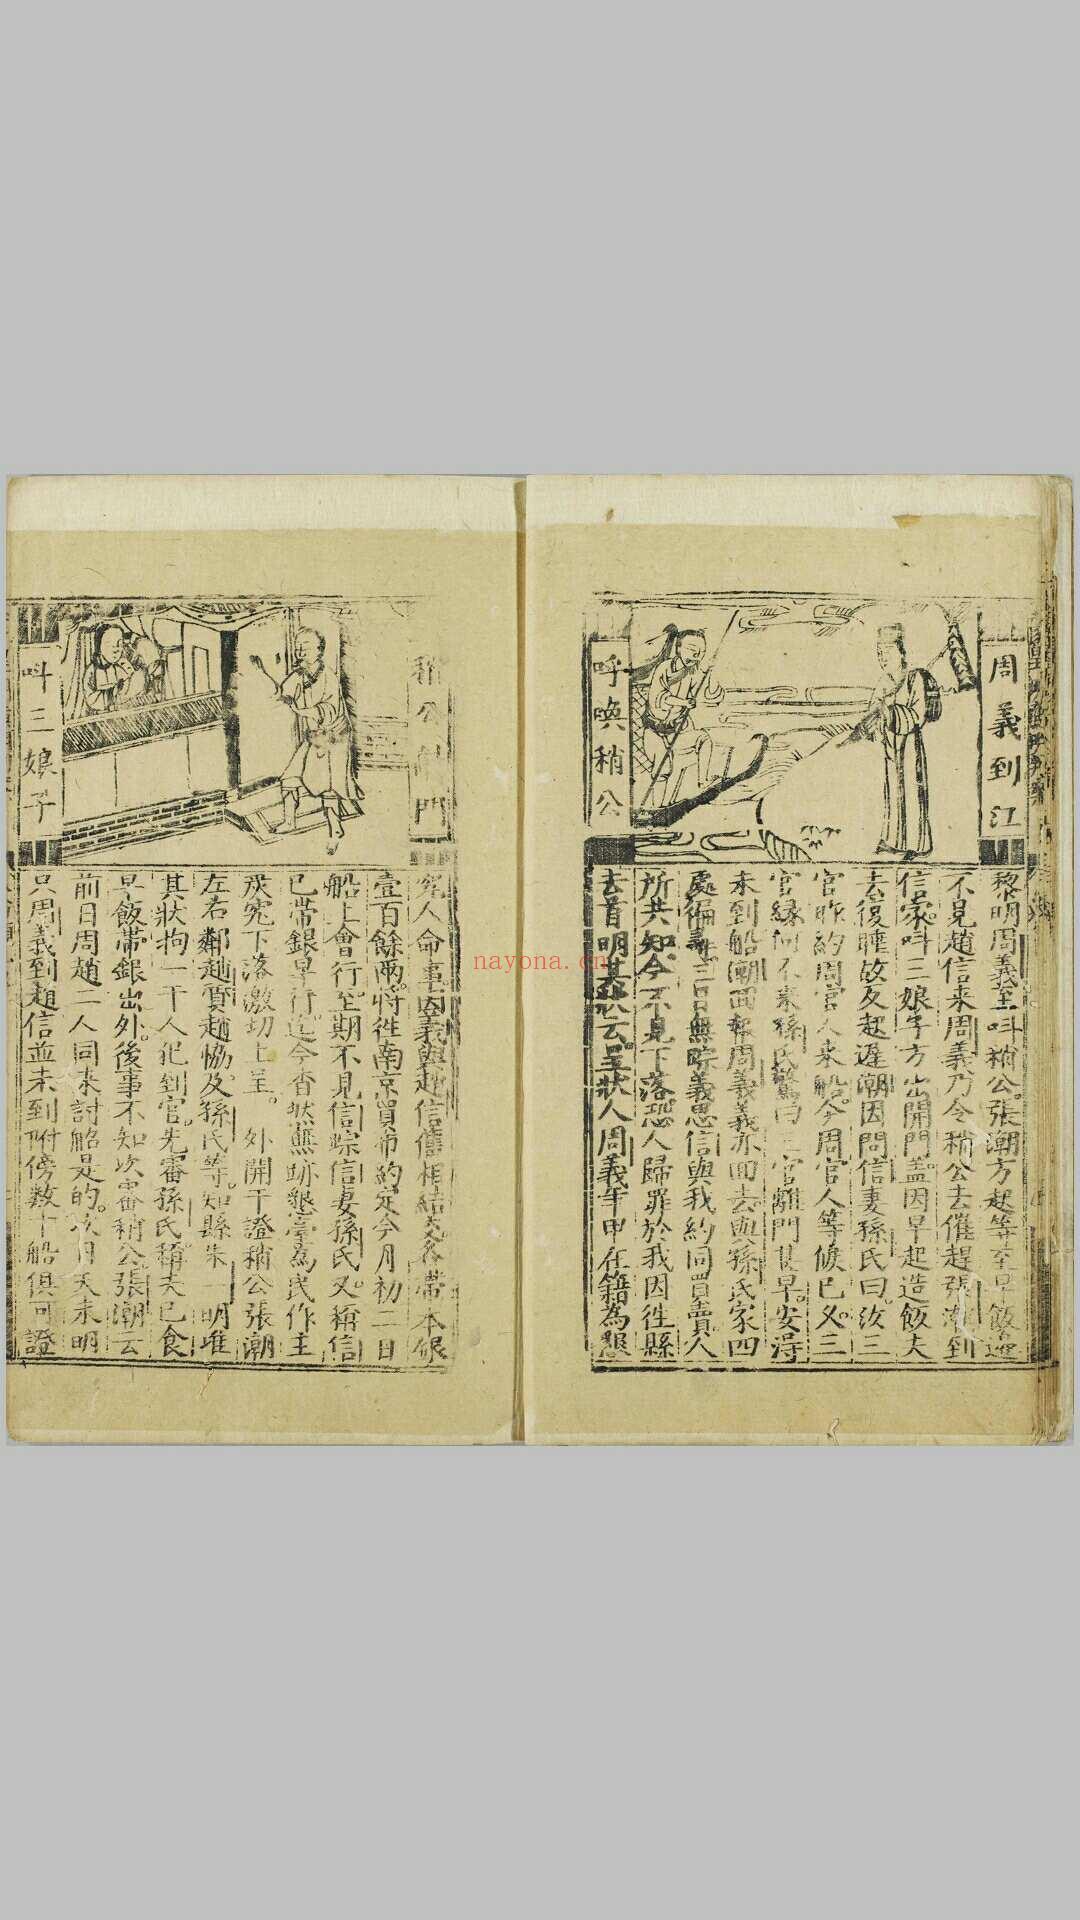 周義到江
呼喚稍公
黎明周義至叫稍公張潮方起等至早飯邊
不見趙信来周義乃令稍公去催趕張潮到
信家叫三娘子方出開門盖因早起造飯夫
去後睡故反起遲潮因問信妻孫氏曰汝三
官昨約周官人来船今周官人等候已久三
官縁何不来孫氏驚曰三官離門甚早安得
未到船潮回報周義義亦回去與孫氏家四
處徧尋三日無踪義思信與我約同買賣人
所共知今不見下落恐人歸罪於我因徃縣
去首明其狀云呈狀人周義年甲在籍為懇
稍公叫門
叫三娘子
究人命事因義與趙信舊相結交各帶本銀
壹百餘兩将徃南京買布約定今月初二日
船上會行至期不見信踪信妻孫氏又稱信
已帶銀早行迄今杳然無跡懇臺為民作主
嚴究下落激切上呈 外開干證稍公張潮
左右鄰趙質趙協及孫氏等知縣朱一明唯
其狀拘一干人犯到官先審孫氏稱夫已食
早飯帶銀出外後事不知次審稍公張潮云
前日周趙二人同来討船是的次日天未明
只周義到趙信並未到附傍数十船俱可證
nayona.cn